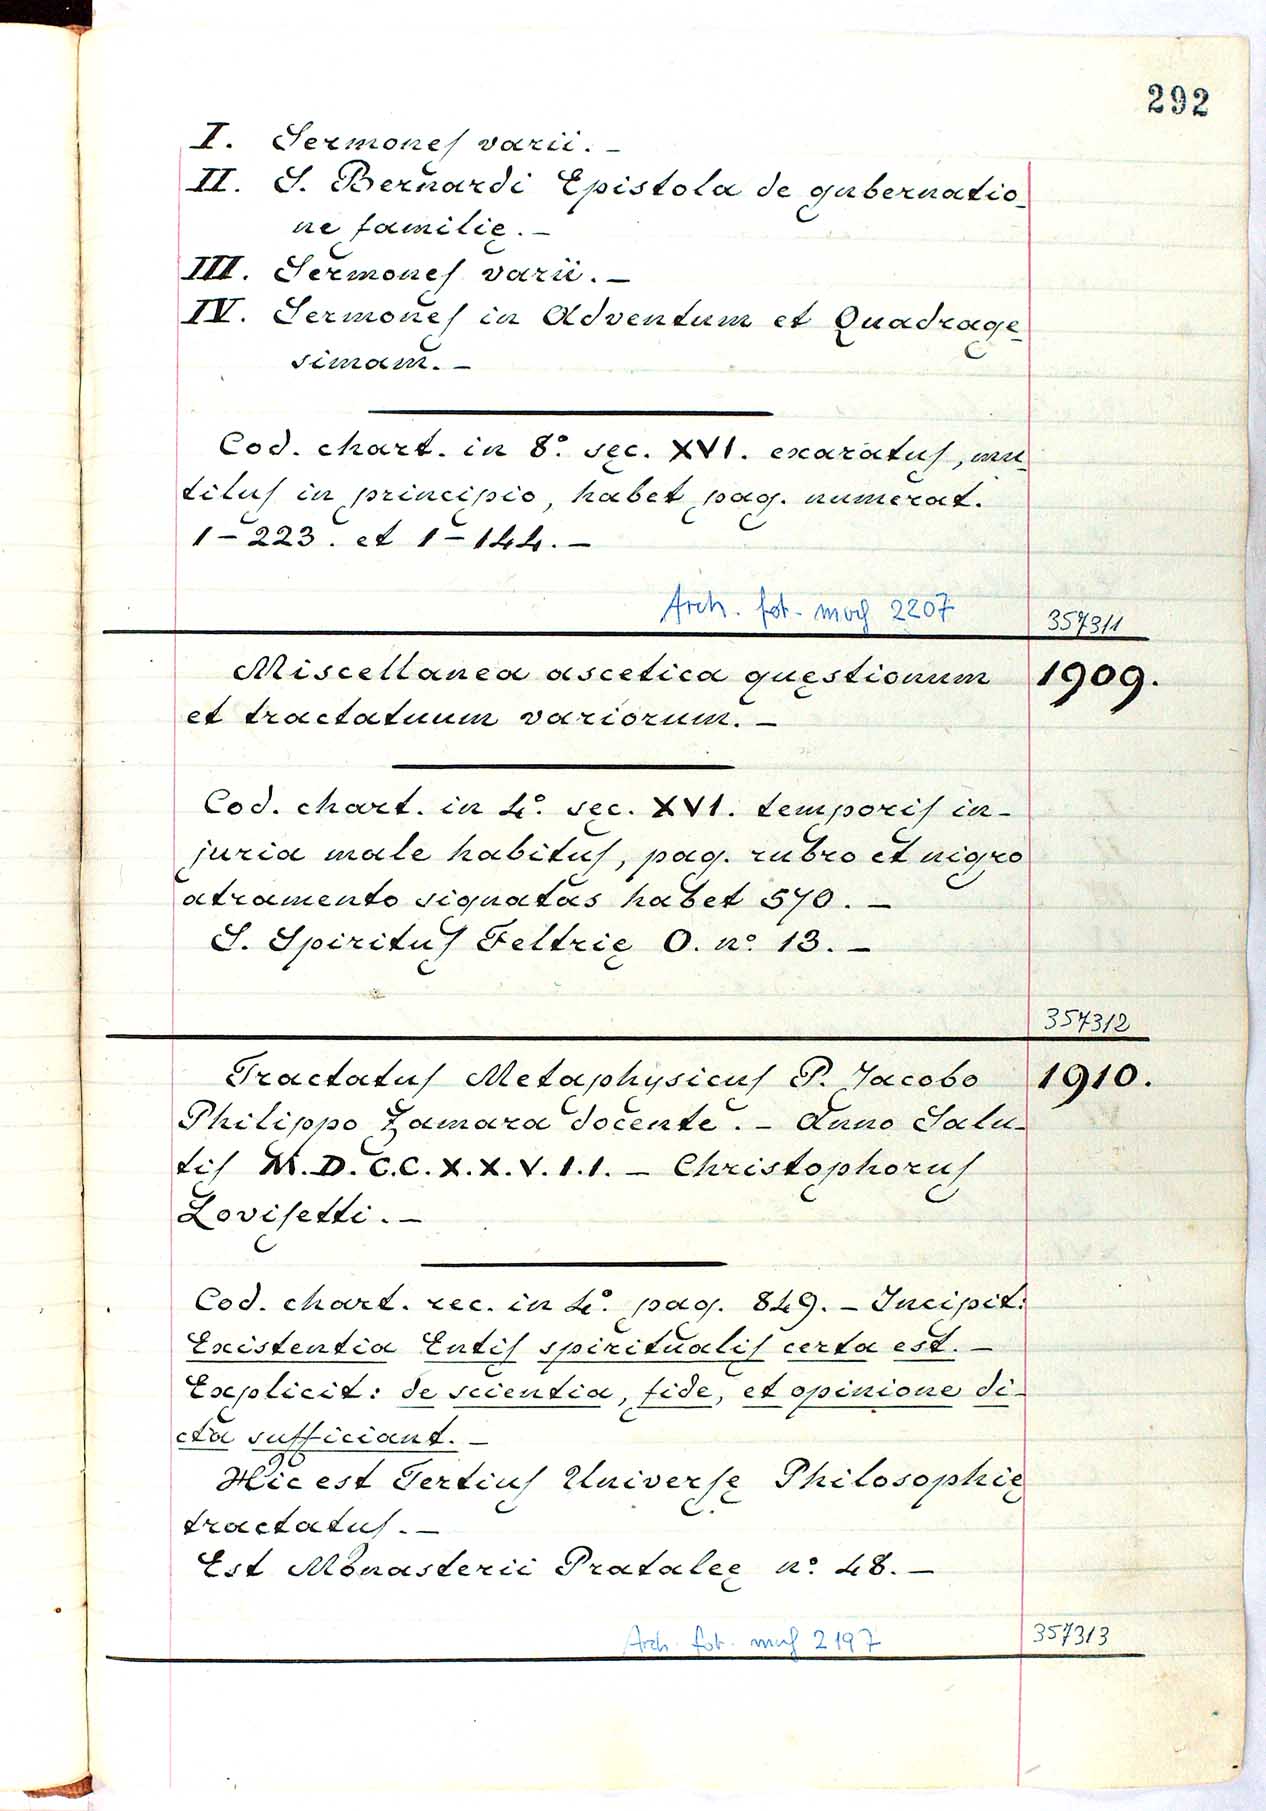 292
I. Sermones varii. –
II. S. Bernardi Epistola de gubernatio-
ne familię. –
III. Sermones varii. –
IV. Sermones in Adventum et Quadrage-
simam. –
Cod. chart. in 8º. sęc. XVI. exaratus, mu-
tilus in principio, habet pag. numerat.
1 – 223. et 1 – 144. –
Arch. fot. mss 2207
357311
Miscellanea ascetica quęstionum
1909.
et tractatuum variorum. –
Cod. chart. in 4º. sęc. XVI. temporis in-
juria male habitus, pag. rubro et nigro
atramento signatas habet 570. –
S. Spiritus Feltrię O. nº. 13. –
357312
Tractatus Metaphysicus P. Jacobo
1910.
Philippo Zamara docente. – Anno Salu-
tis M.D.C.C.X.X.V.I.I. – Christophorus
Lovisetti. –
Cod. chart. rec. in 4º. pag. 849. – Incipit:
Existentia Entis spiritualis certa est. –
Explicit: de scientia, fide, et opinione di-
cta sufficiant. –
Hic est Tertius Universę Philosophię
tractatus. –
Est Monasterii Pratalee nº. 48. –
Arch. fot. mss 2197
357313